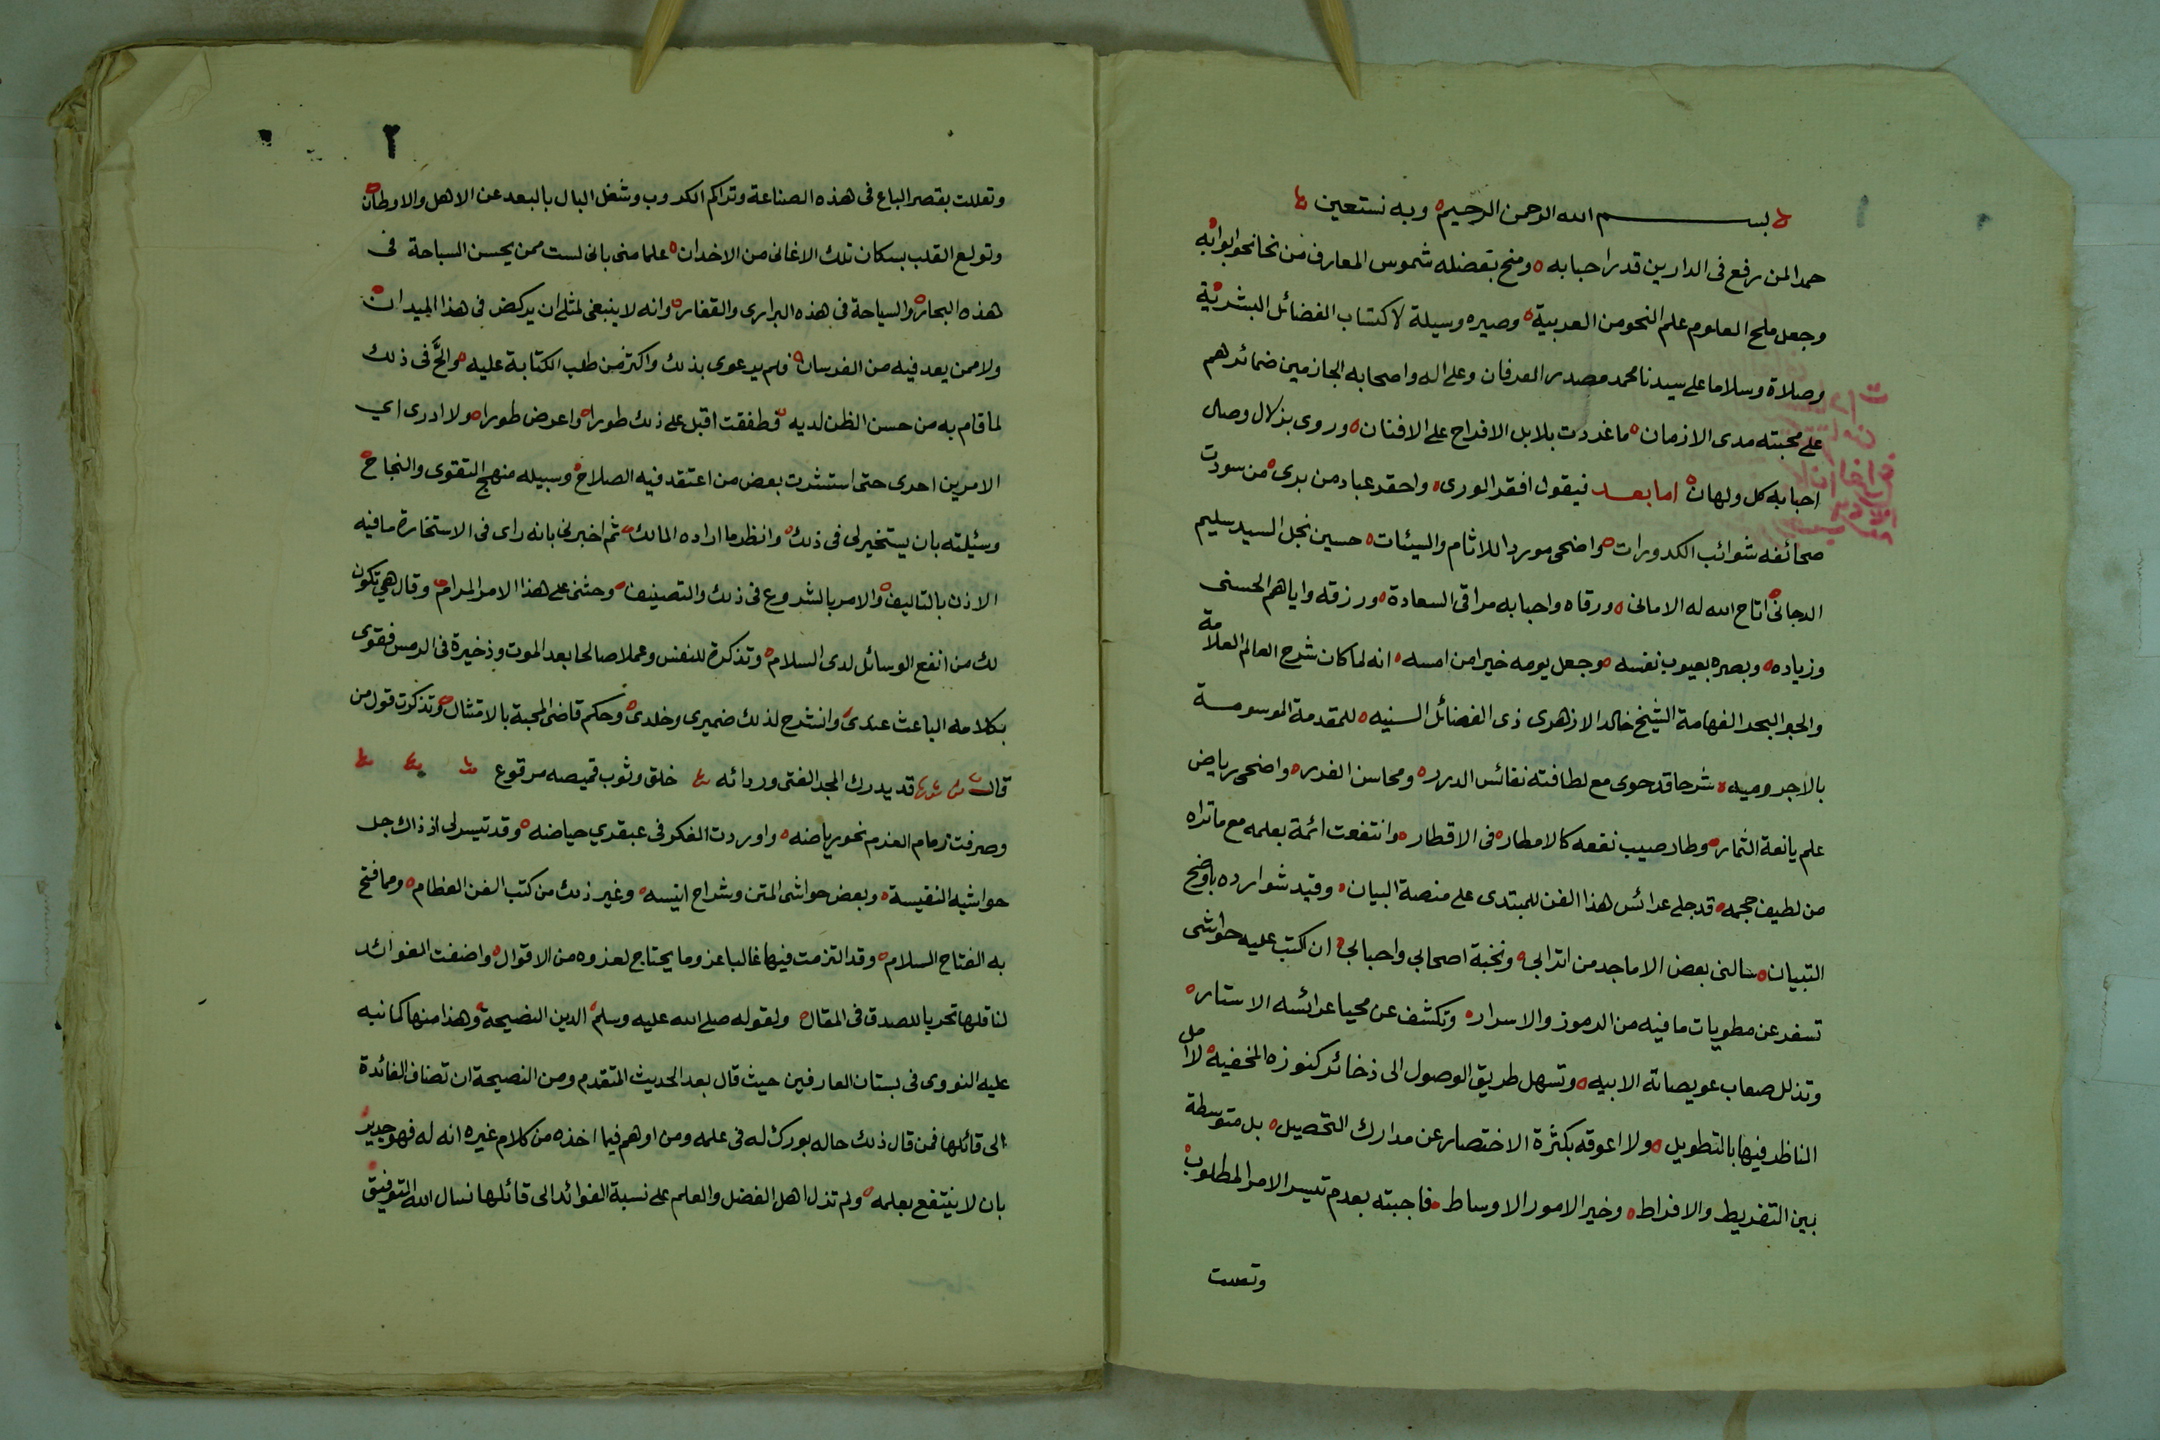 بسم الله الرحمن الرحيم وبه نستعين
حمد المن رفع فى الدارين قدر احبابه ومنح بفضله شموس المعارف من نحا نحو ابوابه
وجعل ملح العلوم علم النحو من العربية وصيره وسيلة لاكتساب الفضائل البشرية
وصلاة وسلاما على سيدنا محمد مصدر العرفان وعلى اله واصحابه الجازمين ضمائرهم
على محبته مدى الازمان ما غردت بلابل الافراح على الافنان وروى بزلال وصال
احبابه كل ولهان اما بعد فيقول افقر الورى واحقر عباد من برى من سودت
صحائفه شوائب الكدورات واضحى موردا للاثام والسيئات حسين نجل السيد سليم
الدجانى اتاح الله له الامانى ورقاه واحبابه مراقى السعادة ورزقه واياهم الحسنى
وزياده وبصره بعيوب نفسه وجعل يومه خيرا من امسه انه لما كان شرح العالم العلامة
والحبر البحر الفهامة الشيخ خالد الازهرى ذى الفضائل السنيه للمقدمة الموسومة
بالاجروميه شرحا قد حوى مع لطافته نفائس الدرر ومحاسن الغرر واضحى رياض
علم يانعة الثمار وطار صيب نفعه كالامطار فى الاقطار وانتفعت ائمة بعلمه مع ماتراه
من لطيف حجمه قد جلى عرائس هذا الفن للمبتدى على منصة البيان وقيد شوارده باوضح
التبيان سالنى بعض الاماجد من اترابى ونخبة اصحابي واحبابي ان اكتب عليه حواشى
تسفر عن مطويات ما فيه من الرموز والاسرار وتكشف عن محيا عرائسه الاستار
وتذلل صعاب عويصاته الابيه وتسهل طريق الوصول الى ذخائر كنوزه المخفيه لا امل
الناظر فيها بالتطويل ولا اعوقه بكثرة الاختصار عن مدارك التحصيل بل متوسطة
بين التفريط والافراط وخير الامور الاوساط فاجبته بعدم تيسر الامر المطلوب
وتعللت
٢
وتعللت بقصر الباع فى هذه الصناعة وتراكم الكروب وشغل البال بالبعد عن الاهل والاوطان
وتولع القلب بسكان تلك الاغانى من الاخدان علما منى بانى لست ممن يحسن السباحة فى
هذه البحار والسياحة فى هذه البرارى والقفار وانه لا ينبغى لمثلى ان يركض فى هذا الميدان
ولا ممن يعد فيه من الفرسان فلم يرعوى بذلك واكثر من طلب الكتابة عليه والحَّ فى ذلك
لما قام به من حسن الظن لديه فطفقت اقبل على ذلك طورا واعرض طورا ولا ادرى اي
الامرين احرى حتى استشرت بعض من اعتقد فيه الصلاح وسبيله منهج التقوى والنجاح
وسئيلته بان يستخير لى فى ذلك وانظر ما اراده المالك ثم اخبرنى بانه راى فى الاستخارة ما فيه
الاذن بالتاليف والامر بالشروع فى ذلك والتصنيف وحثنى على هذا الامر المرام وقال هى تكون
لك من انفع الوسائل لدى السلام وتذكرة للنفس وعملا صالحا بعد الموت وذخيرة فى الرمس فقوى
بكلامه الباعث عندى وانشرح لذلك ضميرى وخلدى وحكم قاضى المحبة بالامتثال وتذكرت قول من
قال قد يدرك المجد الفتى وردائه خلق وثوب قميصه مرقوع
وصرفت زمام العزم نحو رياضه واوردت الفكر فى عبقري حياضه وقد تيسر لى اذ ذاك جل
حواشيه النفيسة وبعض حواشى المتن وشراح انيسه وغير ذلك من كتب الفن العظام ومما فتح
به الفتاح السلام وقد التزمت فيها غالبا عزو ما يحتاج لعزوه من الاقوال واضفت الفوائد
لناقلها تحريا للصدق فى المقال ولقوله صلى الله عليه وسلم الدين النصيحة وهذا منها كما نبه
عليه النووى فى بستان العارفين حيث قال بعد الحديث المتقدم ومن النصيحة ان تضاف الفائدة
الى قائلها فمن قال ذلك حاله بورك له فى علمه ومن اوهم فيما اخذه من كلام غيره انه له فهو جدير
بان لا ينتفع بعلمه ولم تزل اهل الفضل والعلم على نسبة الفوائد الى قائلها نسال الله التوفيق